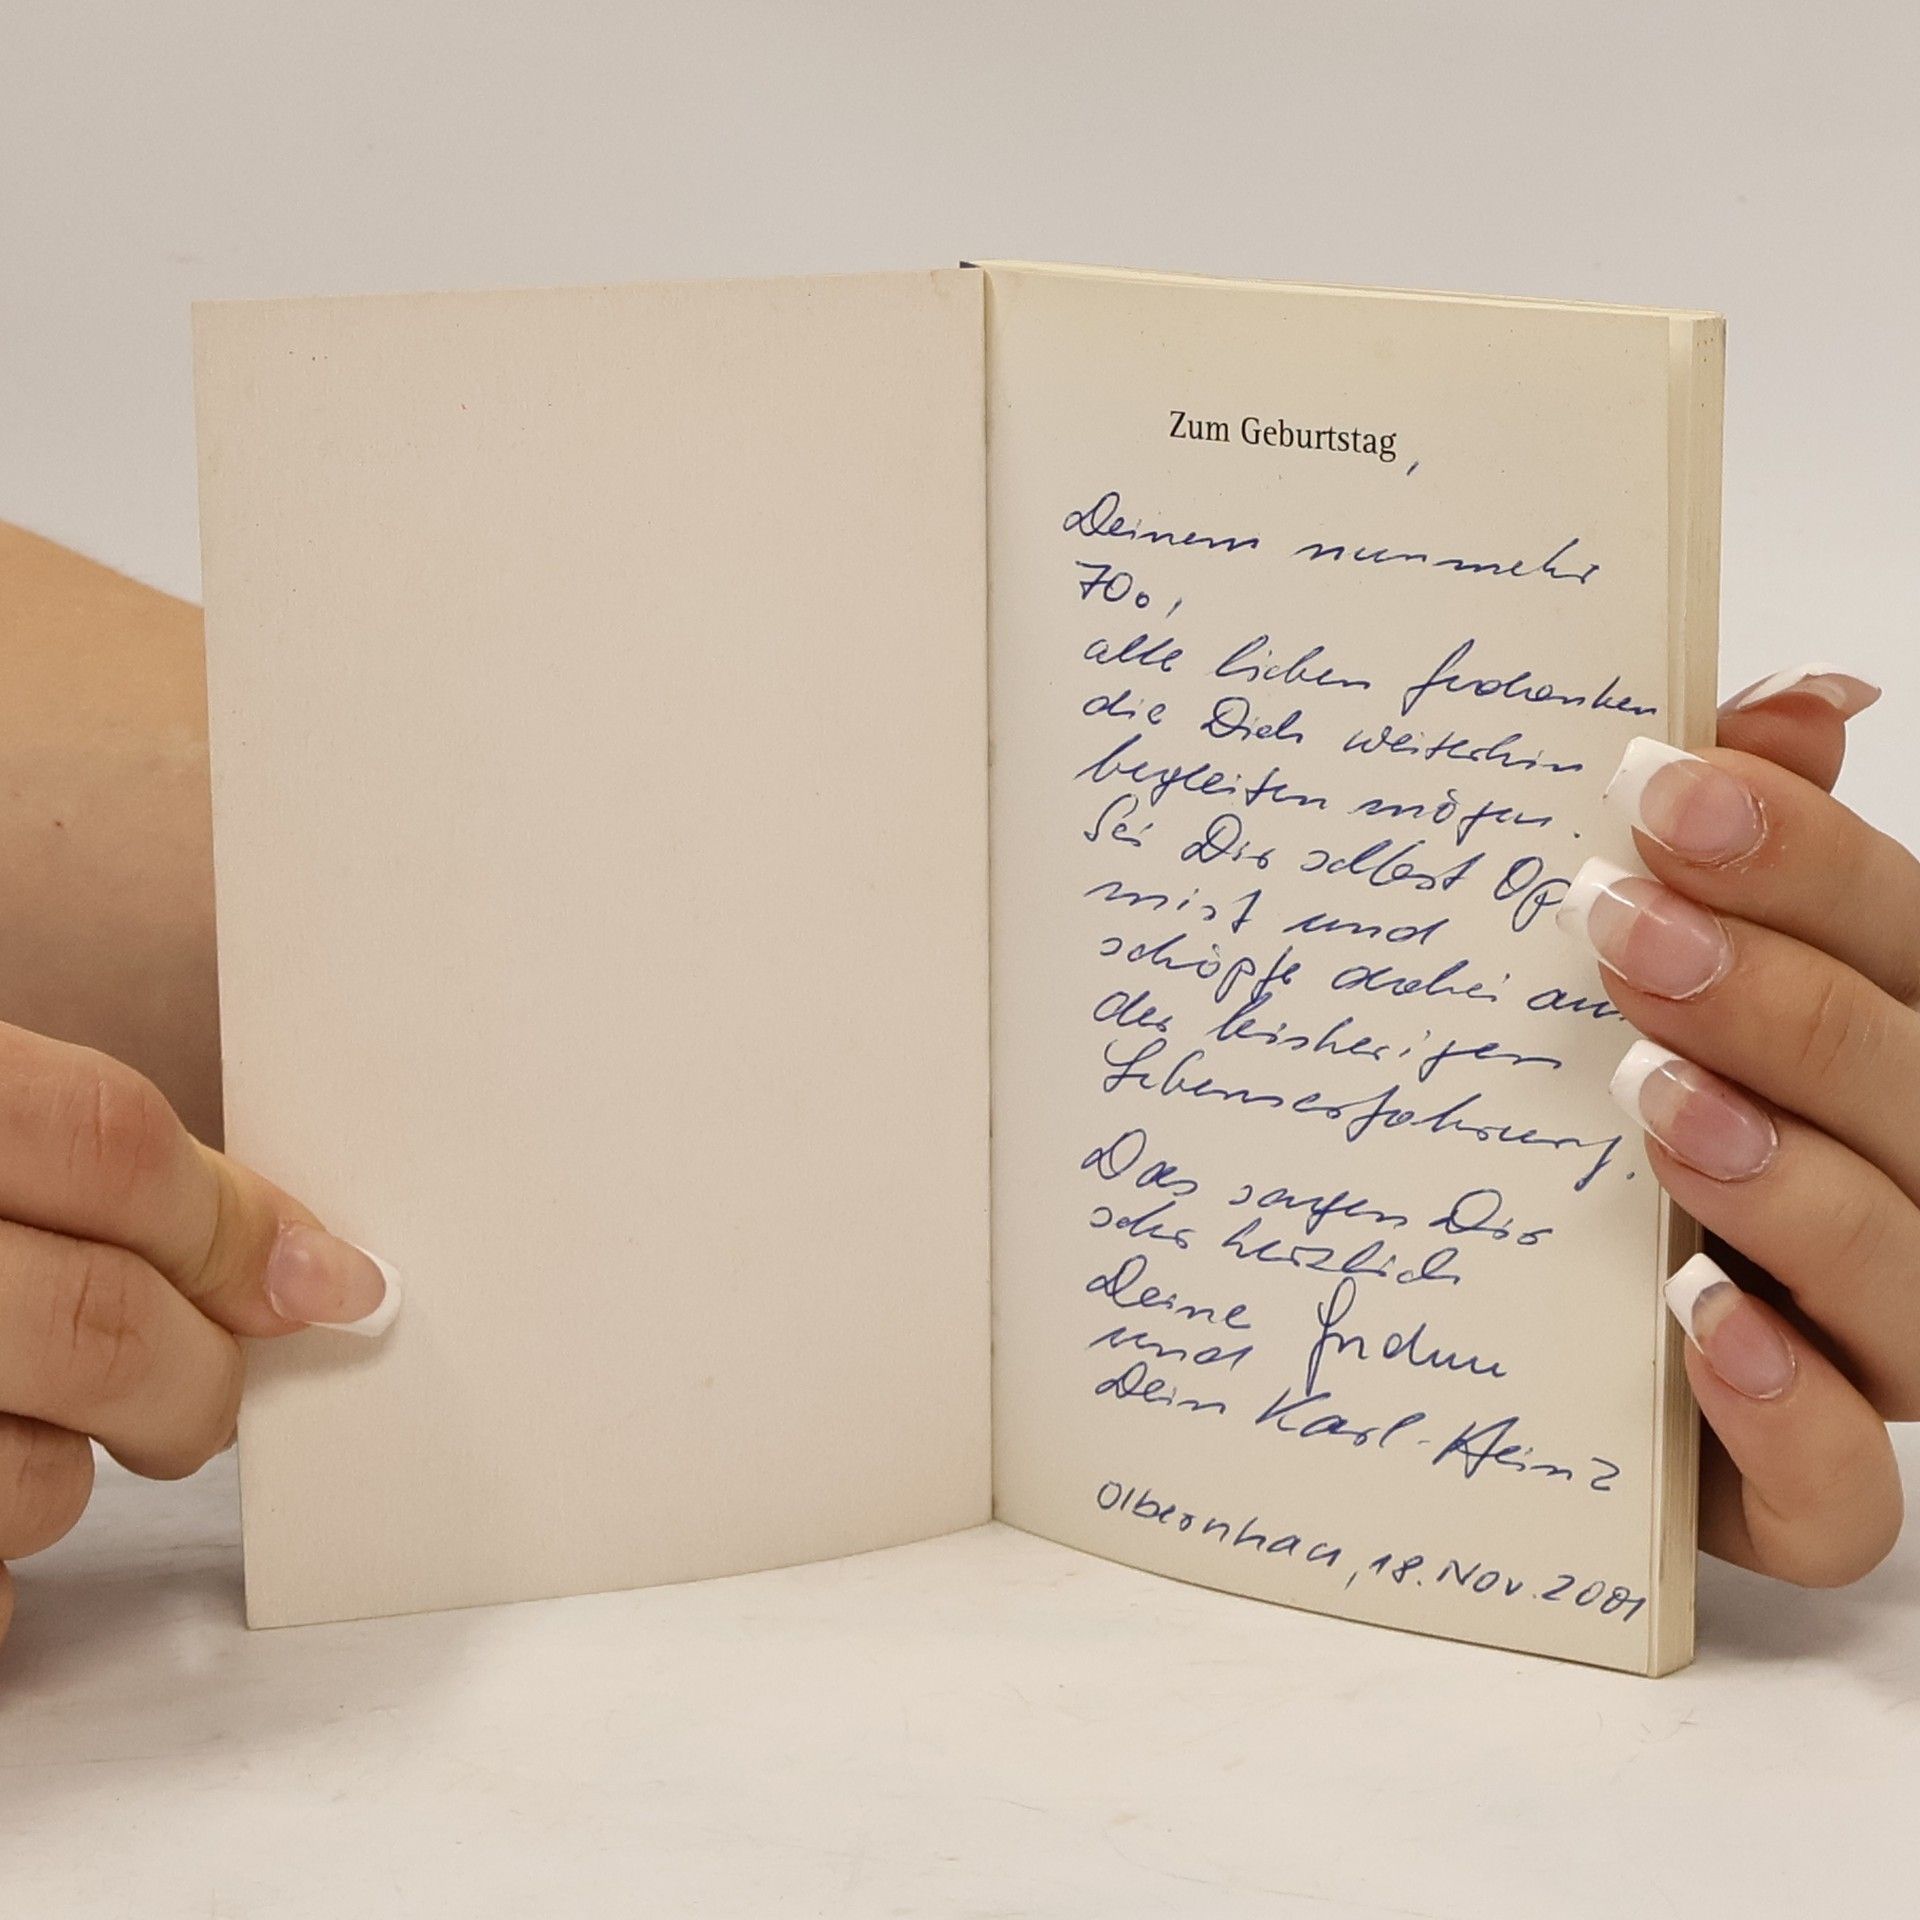 Zum Geburtstag,
Deinem nunmehr
70.,
alle lieben Gedanken
die Dich weiterhin
begleiten mögen.
Sei Dir selbst Op
mist und
schöpfe dabei aus
der bisherigen
Lebenserfahrung.
Das sagen Dir
sehr herzlich
Deine
und
Dein Karl-Heinz
Olbernhau, 18. Nov. 2001